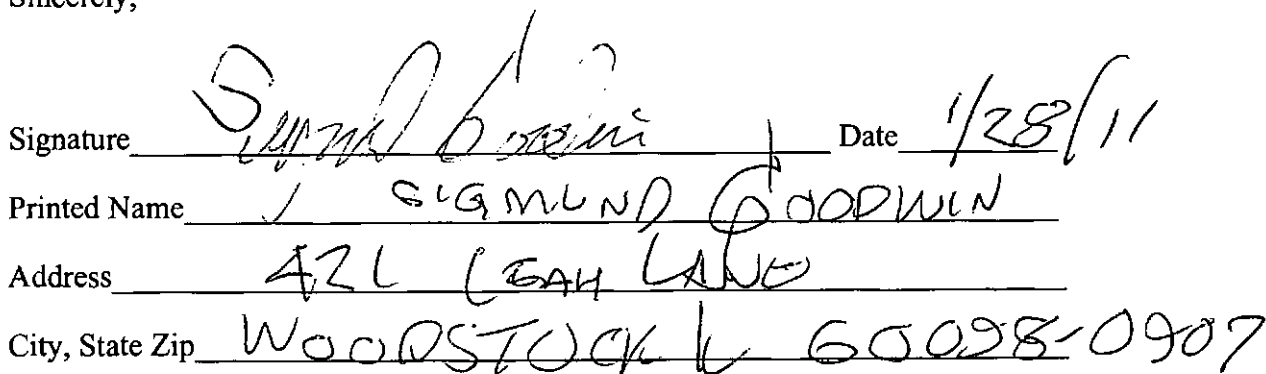 Sincerely,
Signature Sigmund Goodwin Date 1/28/11
Printed Name SIGMUND GOODWIN
Address 421 LEAH LANE
City, State Zip WOODSTOCK IL 60098-0907